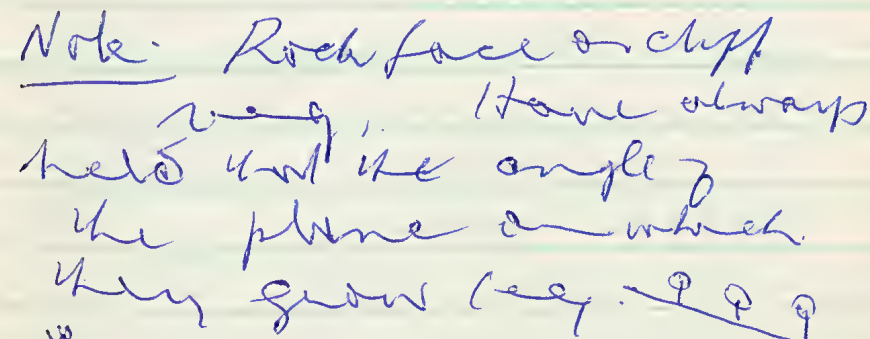 Note. Rock face or cliff
veg. Have always
held that the angle of
the plane on which
they grow (eg.